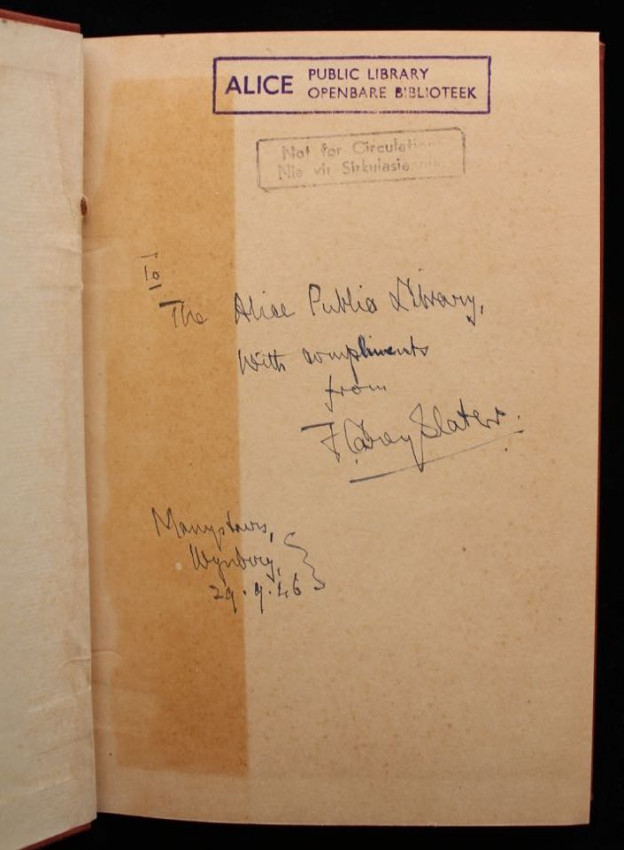 ALICE PUBLIC LIBRARY
OPENBARE BIBLIOTEEK
Not for Circulation
Nie vir Sirkulasie
To
The Alice Public Library,
With compliments
from
F. Carey Slater.
Wynberg,
29.9.46